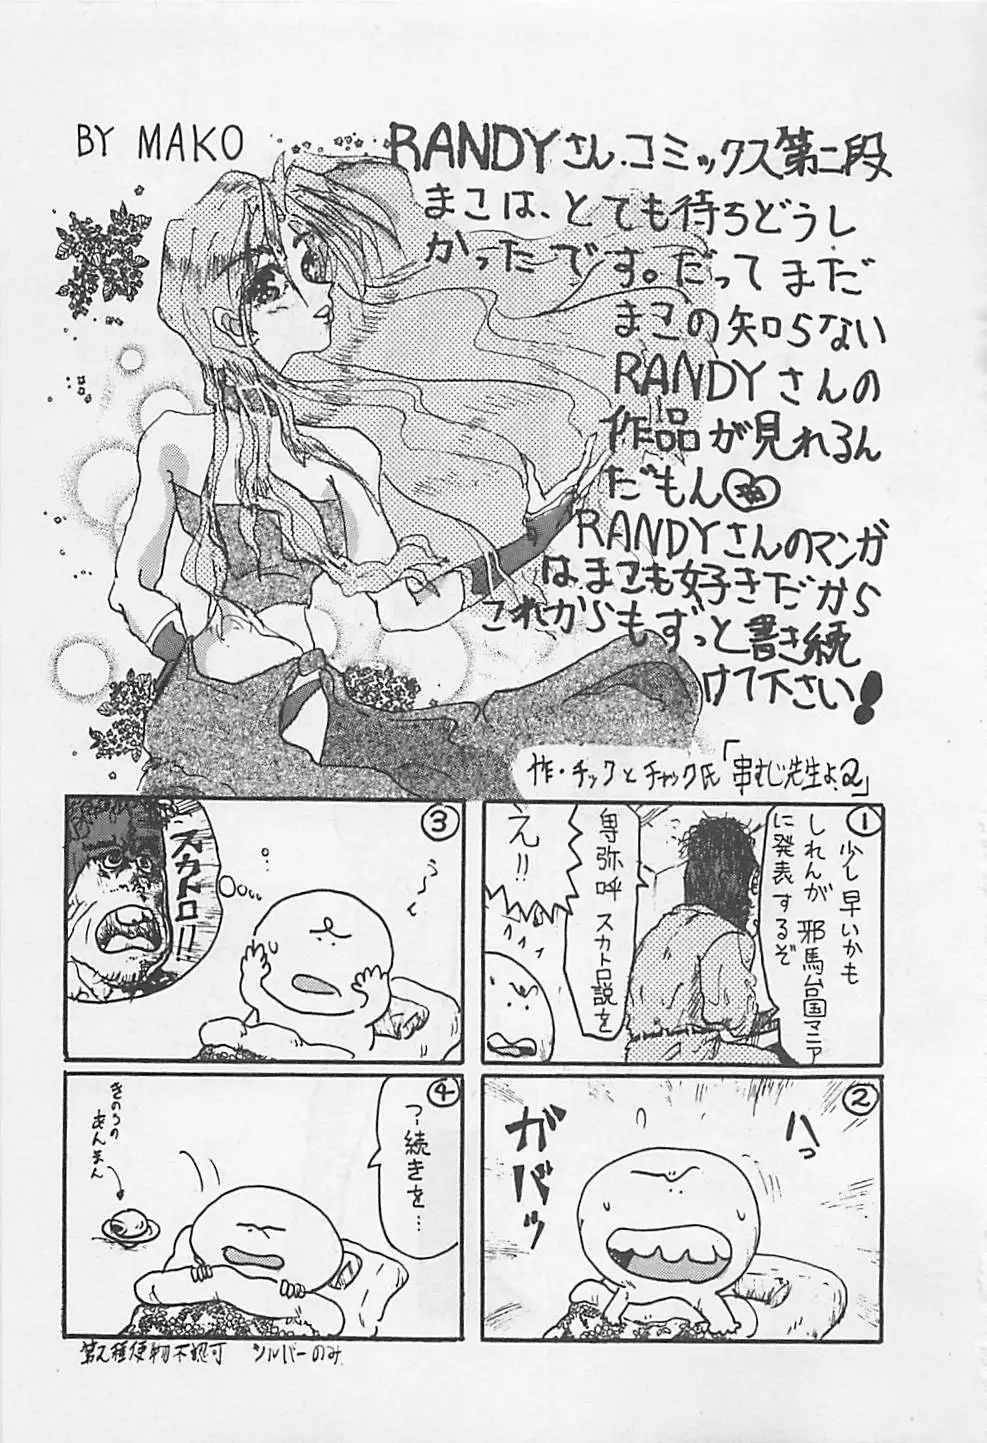 BY MAKO
RANDYさん.コミックス第二段
まこは、とても待ちどうし
かったです。だってまだ
まこの知らない
RANDYさんの
作品が見れるん
だもん
RANDYさんのマンガ
はまこも好きだから
これからもずっと書き続
けて下さい!
作・チックとチャック氏「串むじ先生よ2」
①
少し早いかも
しれんが 邪馬台国マニア
に発表するぞ
卑弥呼 スカトロ説を
え!!
②
ハっ
ガバッ
③
うーっ
スカトロ!!
④
つ…続きを…
きのうの
あんまん
シルバーのみ